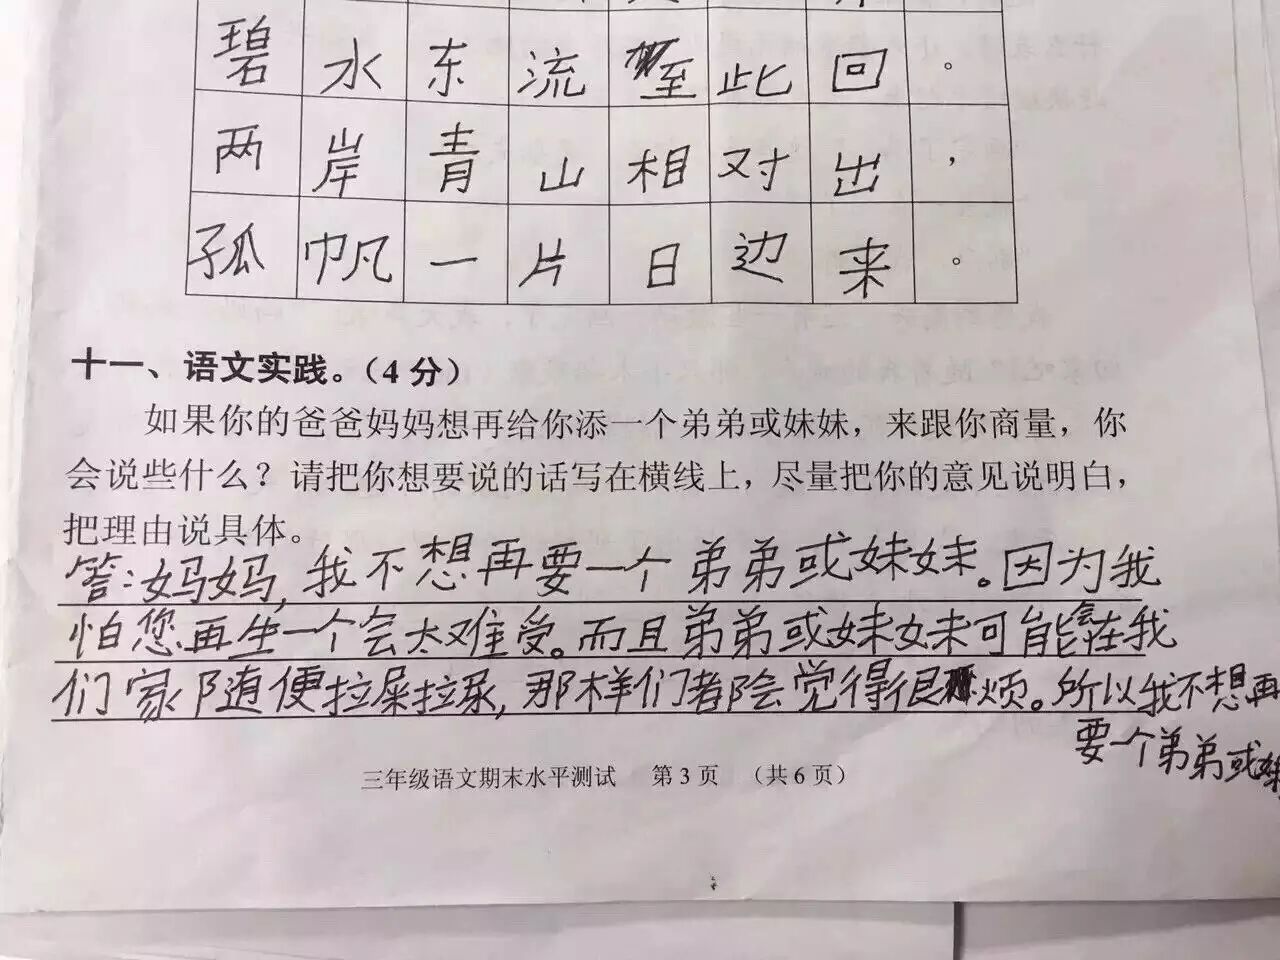 碧水东流至此回。
两岸青山相对出，
孤帆一片日边来。
十一、语文实践。（4分）
如果你的爸爸妈妈想再给你添一个弟弟或妹妹，来跟你商量，你
会说些什么？请把你想要说的话写在横线上，尽量把你的意见说明白，
把理由说具体。
答：妈妈，我不想再要一个弟弟或妹妹。因为我
怕您再生一个会太难受。而且弟弟或妹妹可能会在我
们家随便拉屎拉尿，那样们都会觉得很烦。所以我不想再
要一个弟弟或妹
三年级语文期末水平测试 第3页 （共6页）